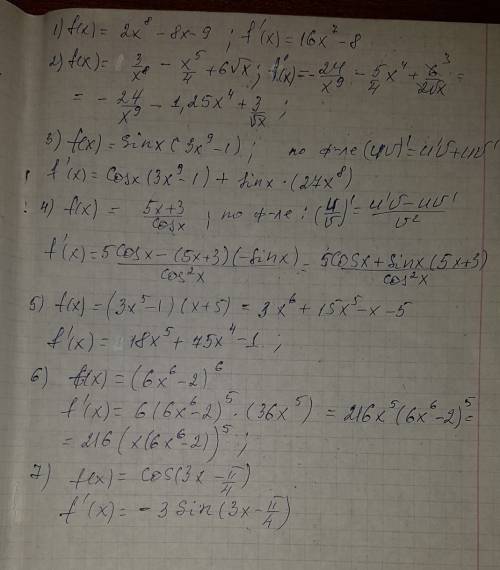 1) f(x) = 2x⁸ - 8x - 9 ; f'(x) = 16x⁷ - 8
2) f(x) = 3/x⁸ - x⁵/4 + 6√x ; f'(x) = - 24/x⁹ - 5/4 x⁴ + 6̶ ³/2̶√x =
= - 24/x⁹ - 1,25x⁴ + 3/√x ;
3) f(x) = Sinx (3x⁹ - 1) ; по ф-ле (uv)' = u'v + uv'
f'(x) = Cosx (3x⁹ - 1) + Sinx · (27x⁸)
4) f(x) = 5x+3/cosx ; по ф-ле : (u/v)' = u'v - uv'/v²
f'(x) = 5Cosx - (5x+3)(-Sinx)/cos²x = 5Cosx + Sinx (5x+3)/cos²x
5) f(x) = (3x⁵ - 1)(x+5) = 3x⁶ + 15x⁵ - x - 5
f'(x) = 18x⁵ + 75x⁴ - 1 ;
6) f(x) = (6x⁶ - 2)⁶
f'(x) = 6(6x⁶ - 2)⁵ · (36x⁵) = 216x⁵(6x⁶ - 2)⁵ =
= 216 (x(6x⁶ - 2))⁵ ;
7) f(x) = Cos(3x - π/4)
f'(x) = - 3 Sin(3x - π/4)